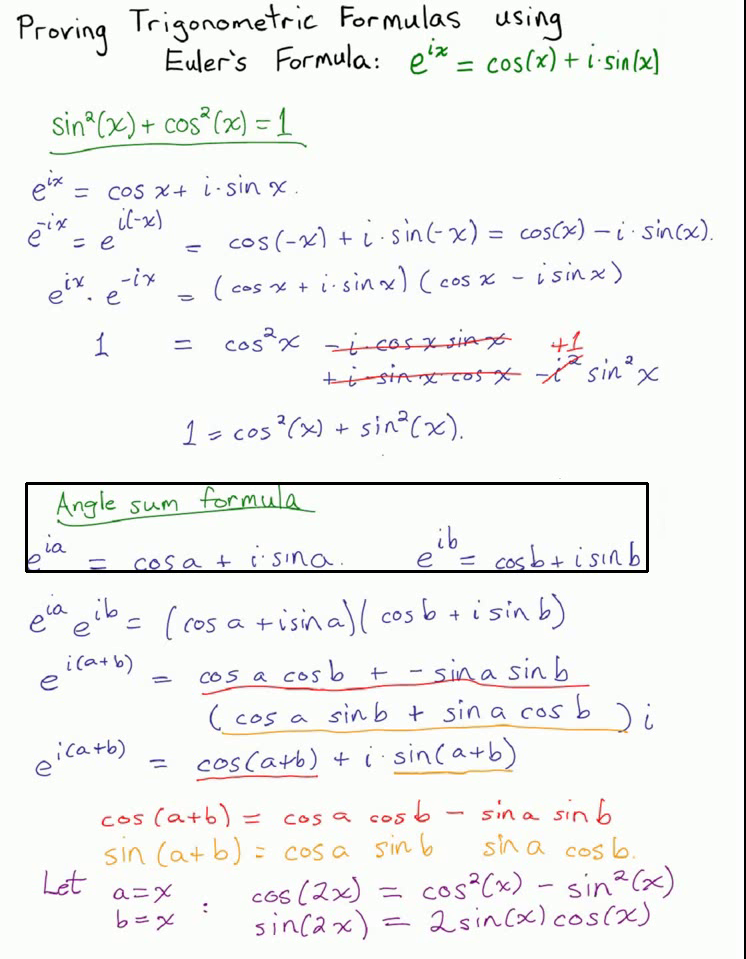 Proving Trigonometric Formulas using
Euler's Formula: e^{ix} = cos(x) + i·sin(x)
sin²(x) + cos²(x) = 1
e^{ix} = cos x + i·sin x.
e^{-ix} = e^{i(-x)} = cos(-x) + i·sin(-x) = cos(x) - i·sin(x).
e^{ix}·e^{-ix} = (cos x + i·sin x)(cos x - i sin x)
1 = cos²x - i·cos x sin x +1
+ i·sin x cos x - i² sin²x
1 = cos²(x) + sin²(x).
Angle sum formula
e^{ia} = cos a + i·sin a. e^{ib} = cos b + i sin b
e^{ia} e^{ib} = (cos a + i sin a)(cos b + i sin b)
e^{i(a+b)} = cos a cos b + - sin a sin b
(cos a sin b + sin a cos b) i
e^{i(a+b)} = cos(a+b) + i·sin(a+b)
cos(a+b) = cos a cos b - sin a sin b
sin(a+b) = cos a sin b sin a cos b.
Let a=x : cos(2x) = cos²(x) - sin²(x)
b=x sin(2x) = 2sin(x)cos(x)